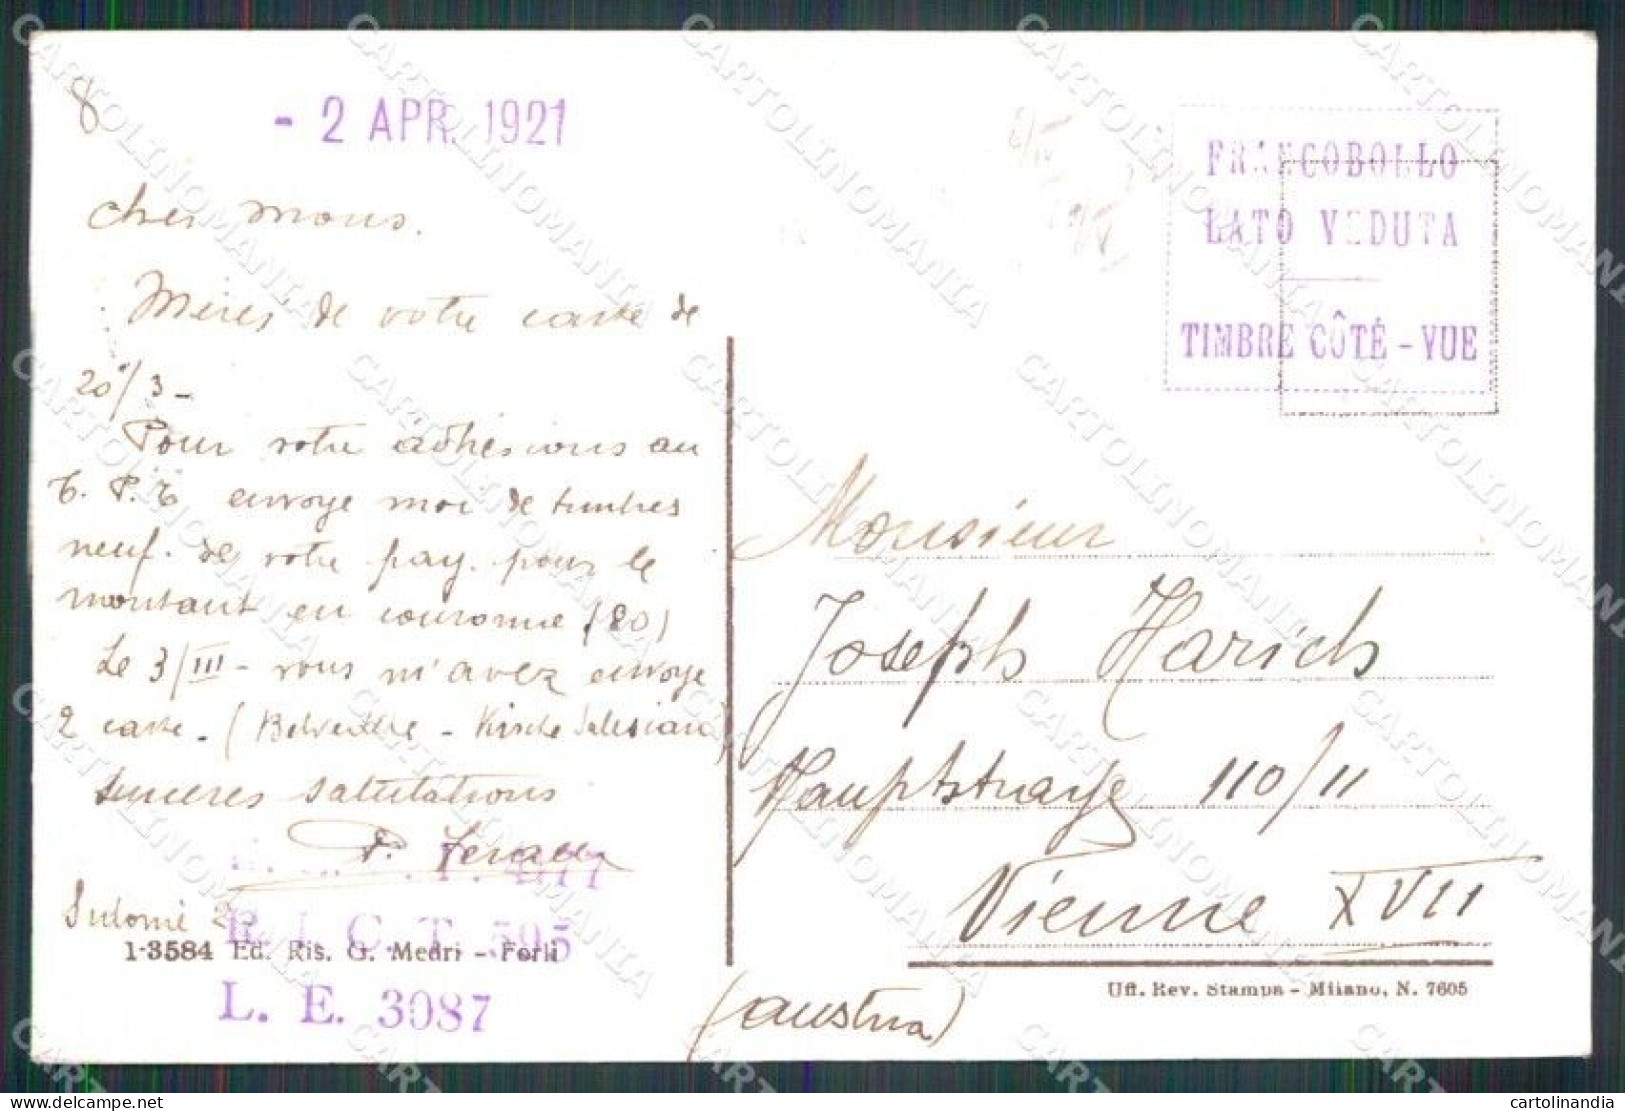 8
- 2 APR. 1921
cher mons.
Merci de votre carte de
20/3 -
Pour votre adhesions au
T. P. T envoye moi de timbres
neuf. de votre pay. pour le
montant en couronne (80)
Le 3/III - vous m'avez envoye
2 carte. (Belvedere - Kirche Salesian)
sinceres salutations
4877
R. I. C. T. 595
1-3584 Ed. Ris. G. Medri - Forlì
L. E. 3087
FRANCOBOLLO
LATO VEDUTA
TIMBRE CÔTÉ - VUE
Monsieur
Joseph Harich
Hauptstrasse 110/11
Vienne XVII
(austria)
Uff. Rev. Stampa - Milano, N. 7605
CARTOLINOMANIA
delcampe.net
cartolinandia